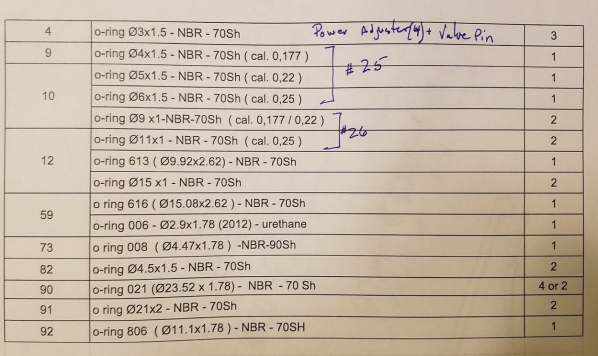 4 o-ring Ø3x1.5 - NBR - 70Sh Power Adjuster(4) + Valve Pin 3
9 o-ring Ø4x1.5 - NBR - 70Sh ( cal. 0,177 ) 1
o-ring Ø5x1.5 - NBR - 70Sh ( cal. 0,22 ) #25 1
10 o-ring Ø6x1.5 - NBR - 70Sh ( cal. 0,25 ) 1
o-ring Ø9 x1-NBR-70Sh ( cal. 0,177 / 0,22 ) 2
o-ring Ø11x1 - NBR - 70Sh ( cal. 0,25 ) #26 2
12 o-ring 613 ( Ø9.92x2.62) - NBR - 70Sh 1
o-ring Ø15 x1 - NBR - 70Sh 2
59 o ring 616 ( Ø15.08x2.62 ) - NBR - 70Sh 1
o-ring 006 - Ø2.9x1.78 (2012) - urethane 1
73 o-ring 008 ( Ø4.47x1.78 ) -NBR-90Sh 1
82 o-ring Ø4.5x1.5 - NBR - 70Sh 2
90 o-ring 021 (Ø23.52 x 1.78) - NBR - 70 Sh 4 or 2
91 o ring Ø21x2 - NBR - 70Sh 2
92 o-ring 806 ( Ø11.1x1.78 ) - NBR - 70SH 1